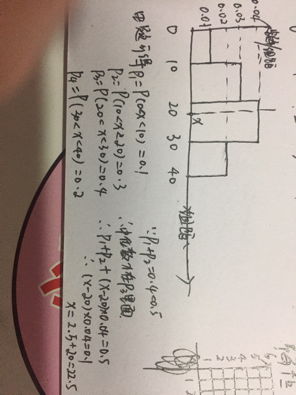 0.04
0.03
0.02
0.01
0 10 20 30 40
x
由题可得 P₁=P(0≤x<10)=0.1
P₂=P(10<x≤20)=0.3
P₃=P(20<x<30)=0.4
P₄=P(30<x<40)=0.2
∵P₁+P₂=0.4<0.5
∴中位数在P₃里面
∴P₁+P₂+(x-20)×0.04=0.5
∴(x-20)×0.04=0.1
x=2.5+20=22.5
6
5
4
3
2
1